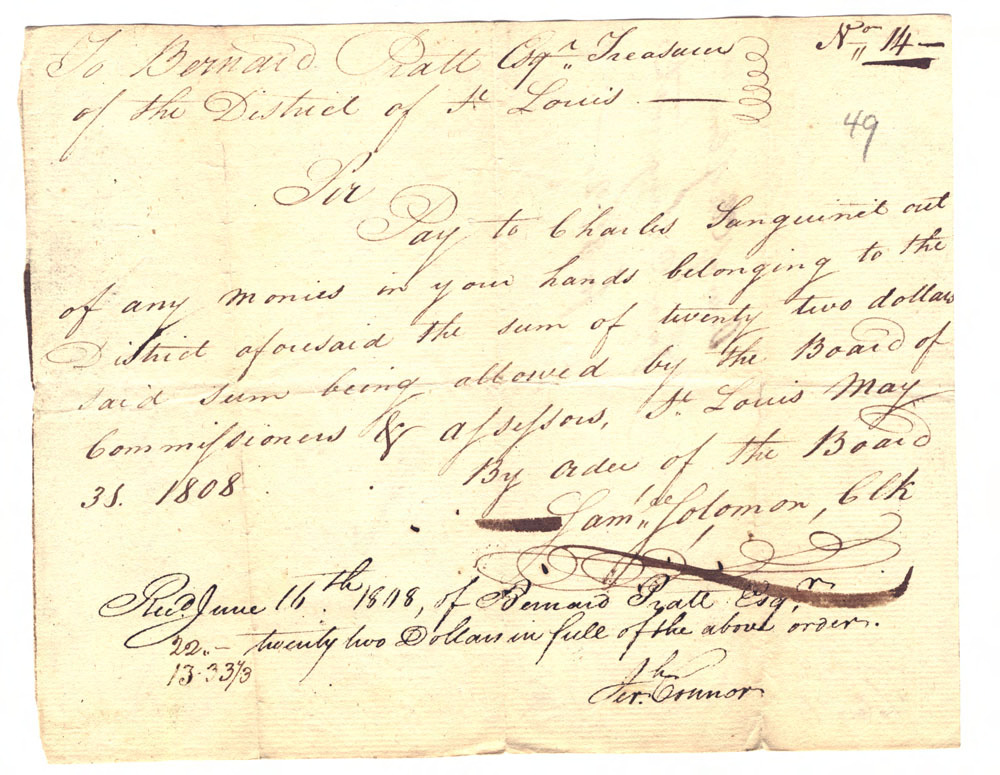 To Bernard Pratt Esqr. Treasurer
of the District of St. Louis
No. 14
49
Sir
Pay to Charles Sanguinet out
of any monies in your hands belonging to the
District aforesaid the sum of twenty two dollars
said sum being allowed by the Board of
Commissioners & assessors, St. Louis May
31. 1808
By order of the Board
Saml. Solomon, Clk
Recd June 16th. 1808, of Bernard Pratt Esqr.
22.- twenty two Dollars in full of the above order.
13-33 1/3
Jerh. Connor